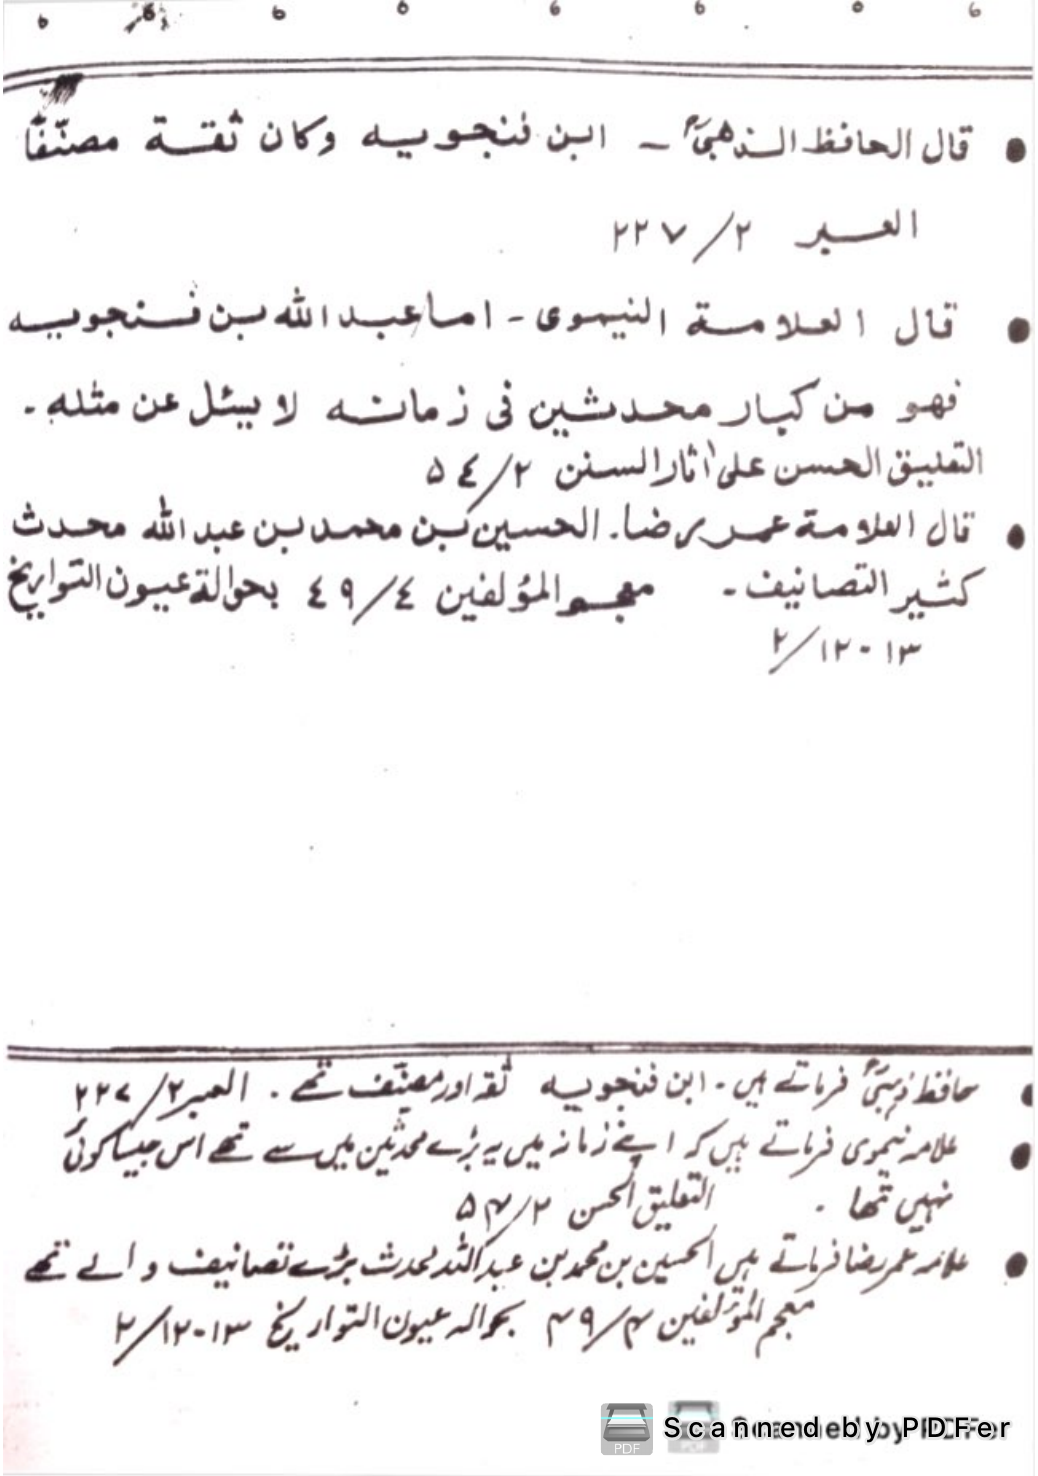 • قال الحافظ الذهبیؒ ـ ابن فنجویه وکان ثقة مصنّفًا
العبر ۲/۲۲۷
• قال العلامة النیموی - اما عبد الله بن فنجویه
فهو من کبار محدثین فی زمانه لا یسئل عن مثله -
التعلیق الحسن علیٰ آثار السنن ۲/٥٤
• قال العلامة عمر رضا. الحسین بن محمد بن عبد الله محدث
کثیر التصانیف - معجم المؤلفین ٤/٤۹ بحوالة عیون التواریخ
۱۳-۱۲/۲
• حافظ ذہبیؒ فرماتے ہیں - ابن فنجویه ثقہ اور مصنّف تھے - العبر ۲/۲۲۷
• علامہ نیموی فرماتے ہیں کہ اپنے زمانہ میں یہ بڑے محدثین میں سے تھے اس جیسا کوئی
نہیں تھا - التعلیق الحسن ۲/۵۴
• علامہ عمر رضا فرماتے ہیں الحسین بن محمد بن عبد اللہ محدث بڑے تصانیف والے تھے
معجم المؤلفین ۴/۴۹ بحوالہ عیون التواریخ ۱۳-۱۲/۲
Scanned by PDFer